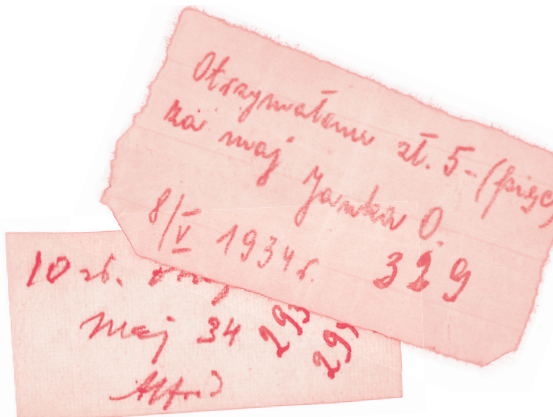 Otrzymałam zł. 5-(pięć)
za maj Janka O.
8/V 1934r. 329
10 zł.
Maj 34 293
299
Alfred